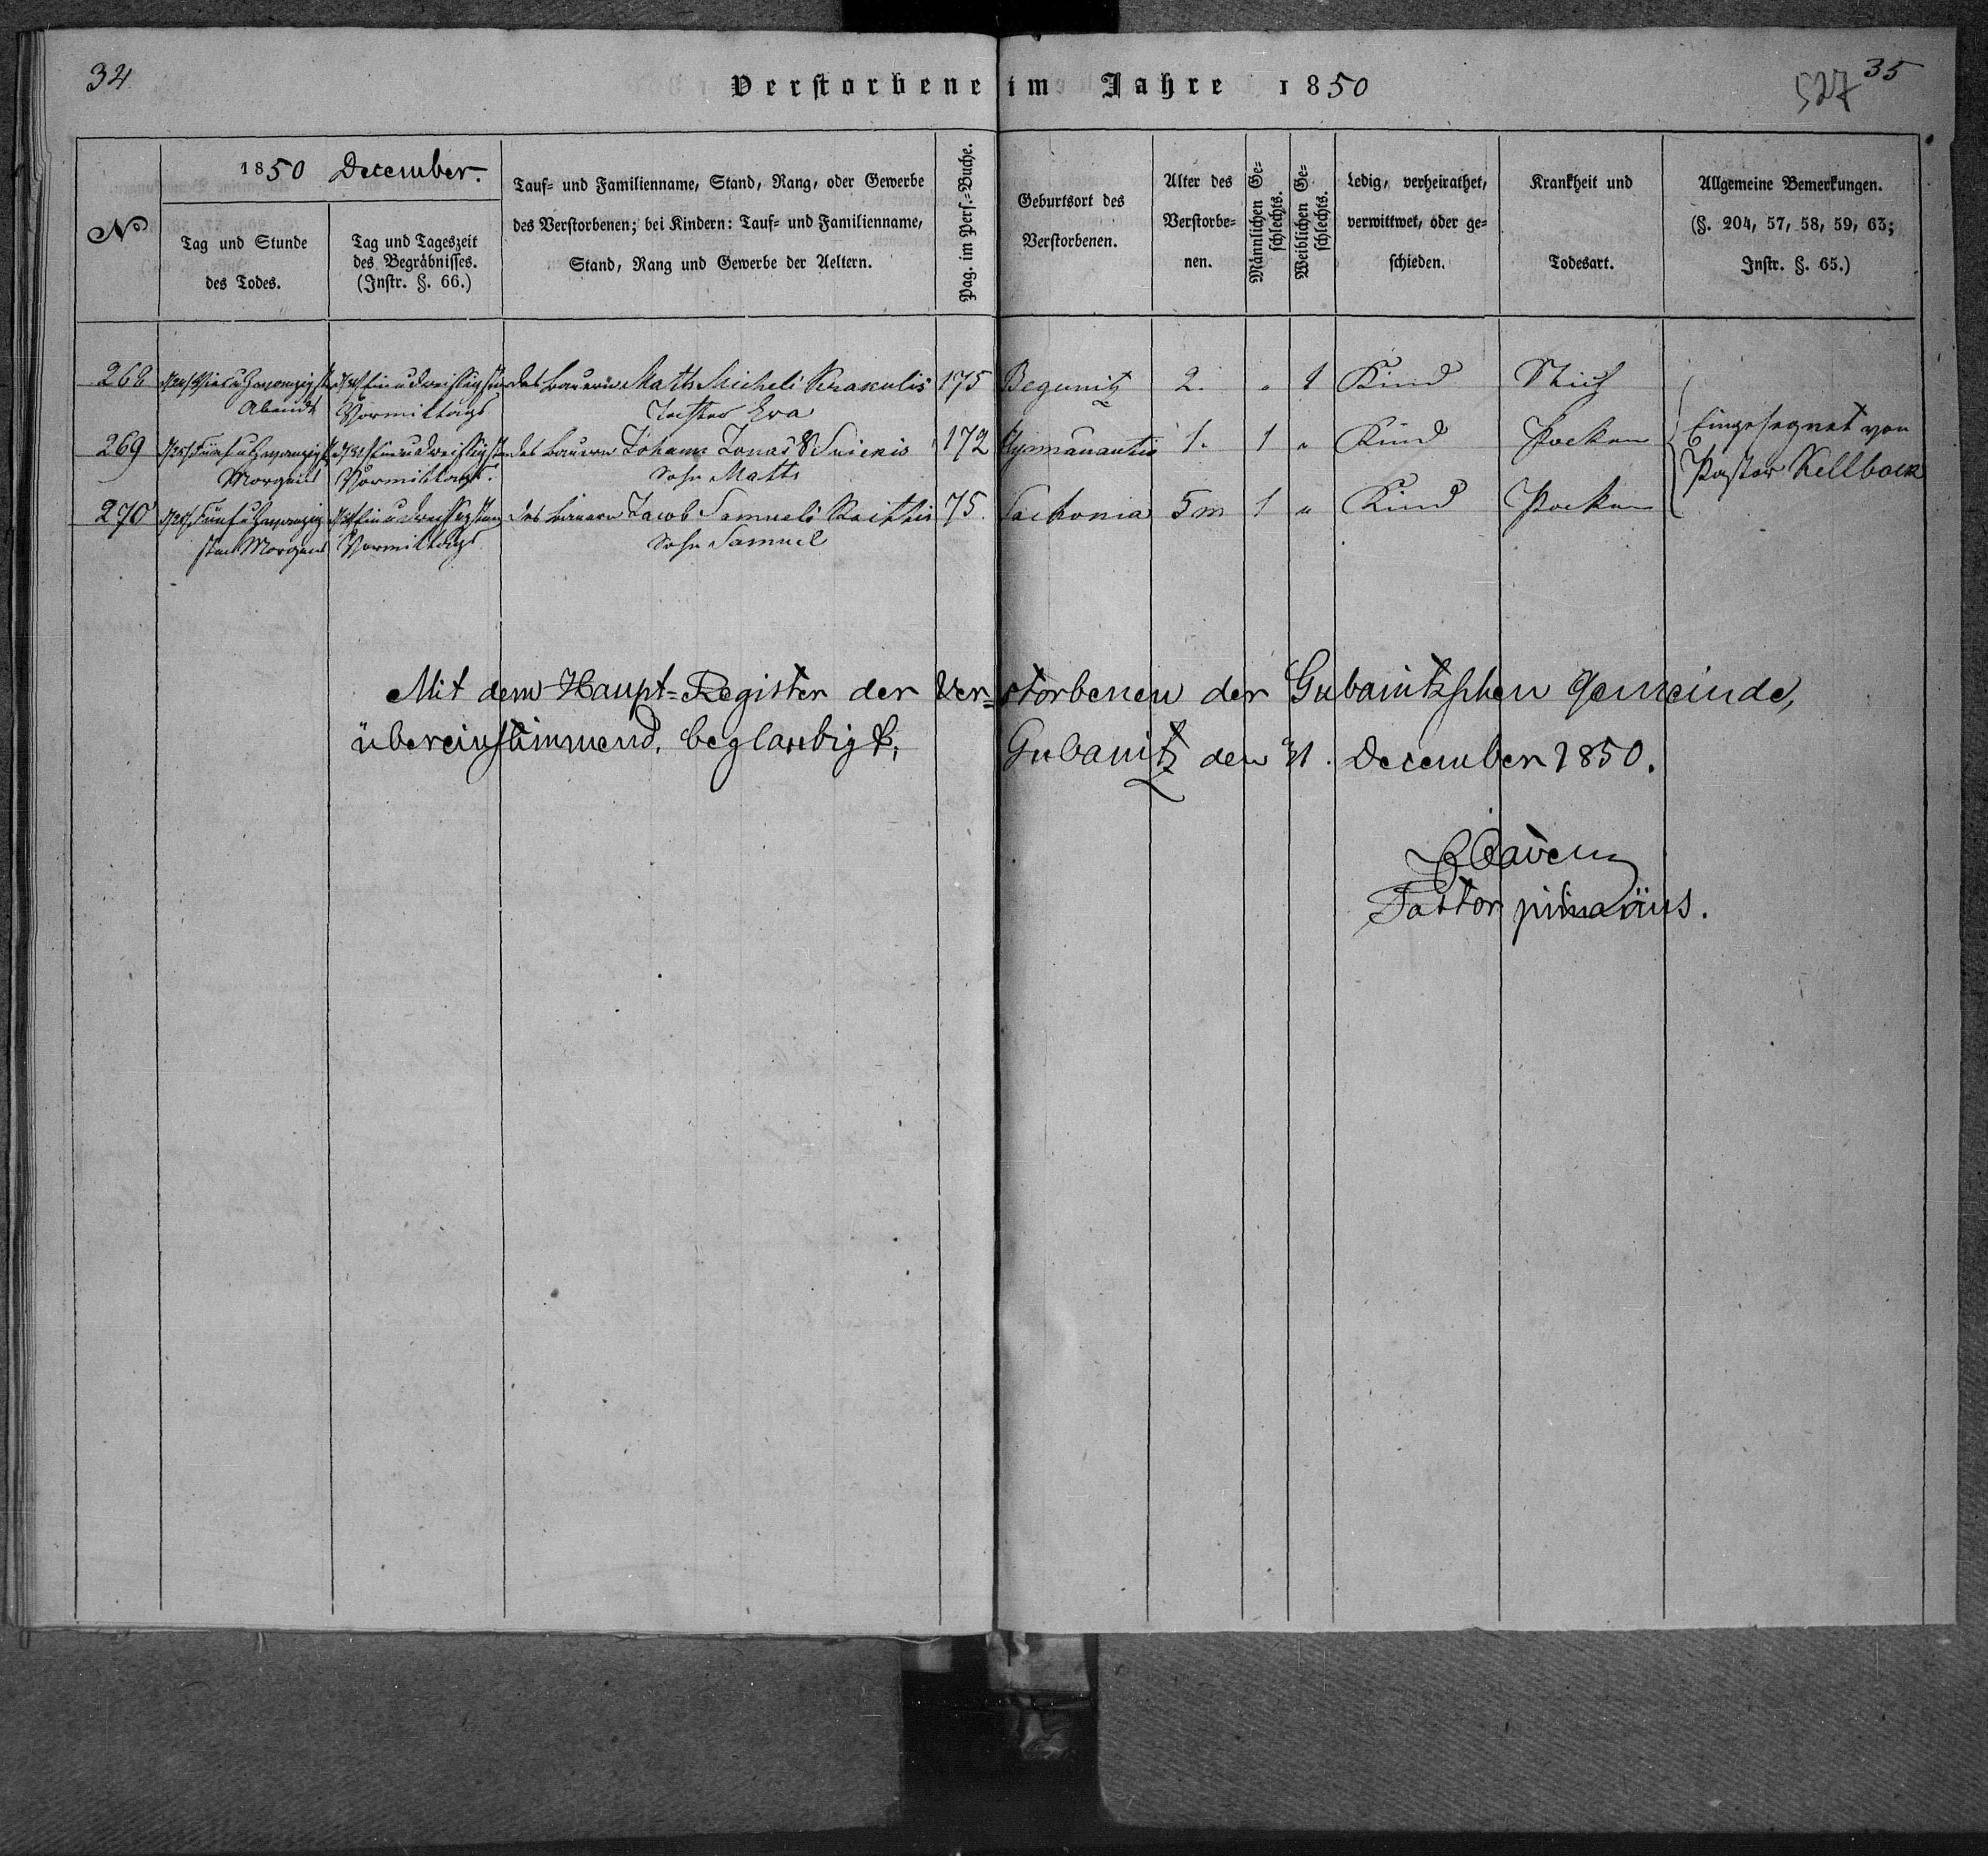 34
Verstorbene im Jahre 1850
527
35
№
1850 December.
Tag und Stunde
des Todes.
Tag und Tageszeit
des Begräbnisses.
(Instr. §. 66.)
Tauf- und Familienname, Stand, Rang, oder Gewerbe
des Verstorbenen; bei Kindern: Tauf- und Familienname,
Stand, Rang und Gewerbe der Aeltern.
Pag. im Pers.-Buche.
Geburtsort des
Verstorbenen.
Alter des
Verstorbe-
nen.
Männlichen Ge-
schlechts.
Weiblichen Ge-
schlechts.
Ledig, verheirathet,
verwittwet, oder ge-
schieden.
Krankheit und
Todesart.
Allgemeine Bemerkungen.
(§. 204, 57, 58, 59, 63;
Instr. §. 65.)
268 Abends Vormittags
des Bauern Matts Micheli Krakulis 175 Begunitz 2. „ 1 Kind
Tochter Eva
269 Morgens Vormittags
des Bauern Johann Jonas S. Suikis 172 1. 1 „ Kind Pocken
Sohn Matts
270 sten Morgens Vormittags
des Bauern Jacob Samueli 75. 5 m 1 „ Kind Pocken
Sohn Samuel
Eingesegnet von
Pastor Kellbock
Mit dem Haupt-Register der Ver=storbenen der Gubanitzschen Gemeinde,
übereinstimmend, beglaubigt; Gubanitz den 31. December 1850.
Pastor primarius.